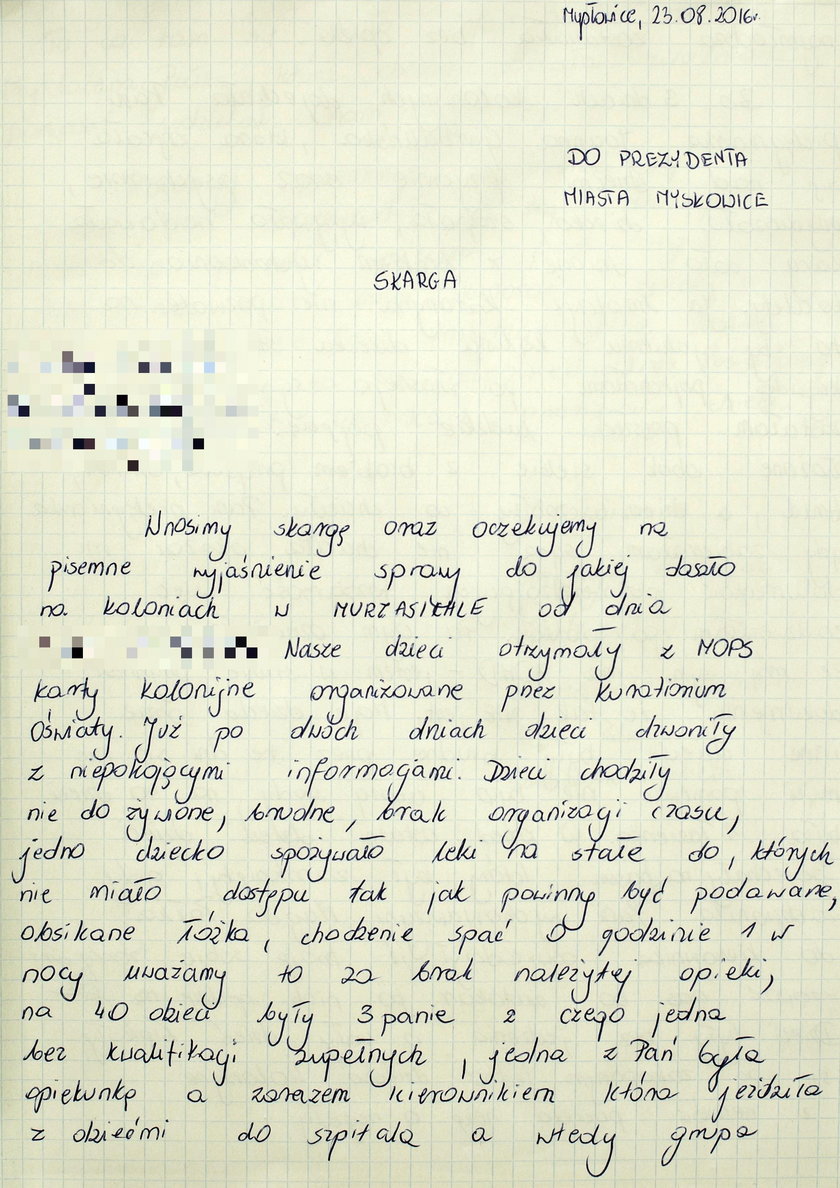 Mysłowice, 23.08.2016r.
DO PREZYDENTA
MIASTA MYSŁOWICE
SKARGA
Wnosimy skargę oraz oczekujemy na
pisemne wyjaśnienie sprawy do jakiej doszło
na koloniach w MURZASICHLE od dnia
Nasze dzieci otrzymały z MOPS
karty kolonijne organizowane przez Kuratorium
Oświaty. Już po dwóch dniach dzieci dzwoniły
z niepokojącymi informacjami. Dzieci chodziły
nie do żywione, brudne, brak organizacji czasu,
jedno dziecko spożywało leki na stałe do, których
nie miało dostępu tak jak powinny być podawane,
obsikane łóżka, chodzenie spać o godzinie 1 w
nocy uważamy to za brak należytej opieki,
na 40 dzieci były 3 panie z czego jedna
bez kwalifikacji zupełnych, jedna z Pań była
opiekunką a zarazem kierownikiem która jeździła
z dziećmi do szpitala a wtedy grupa